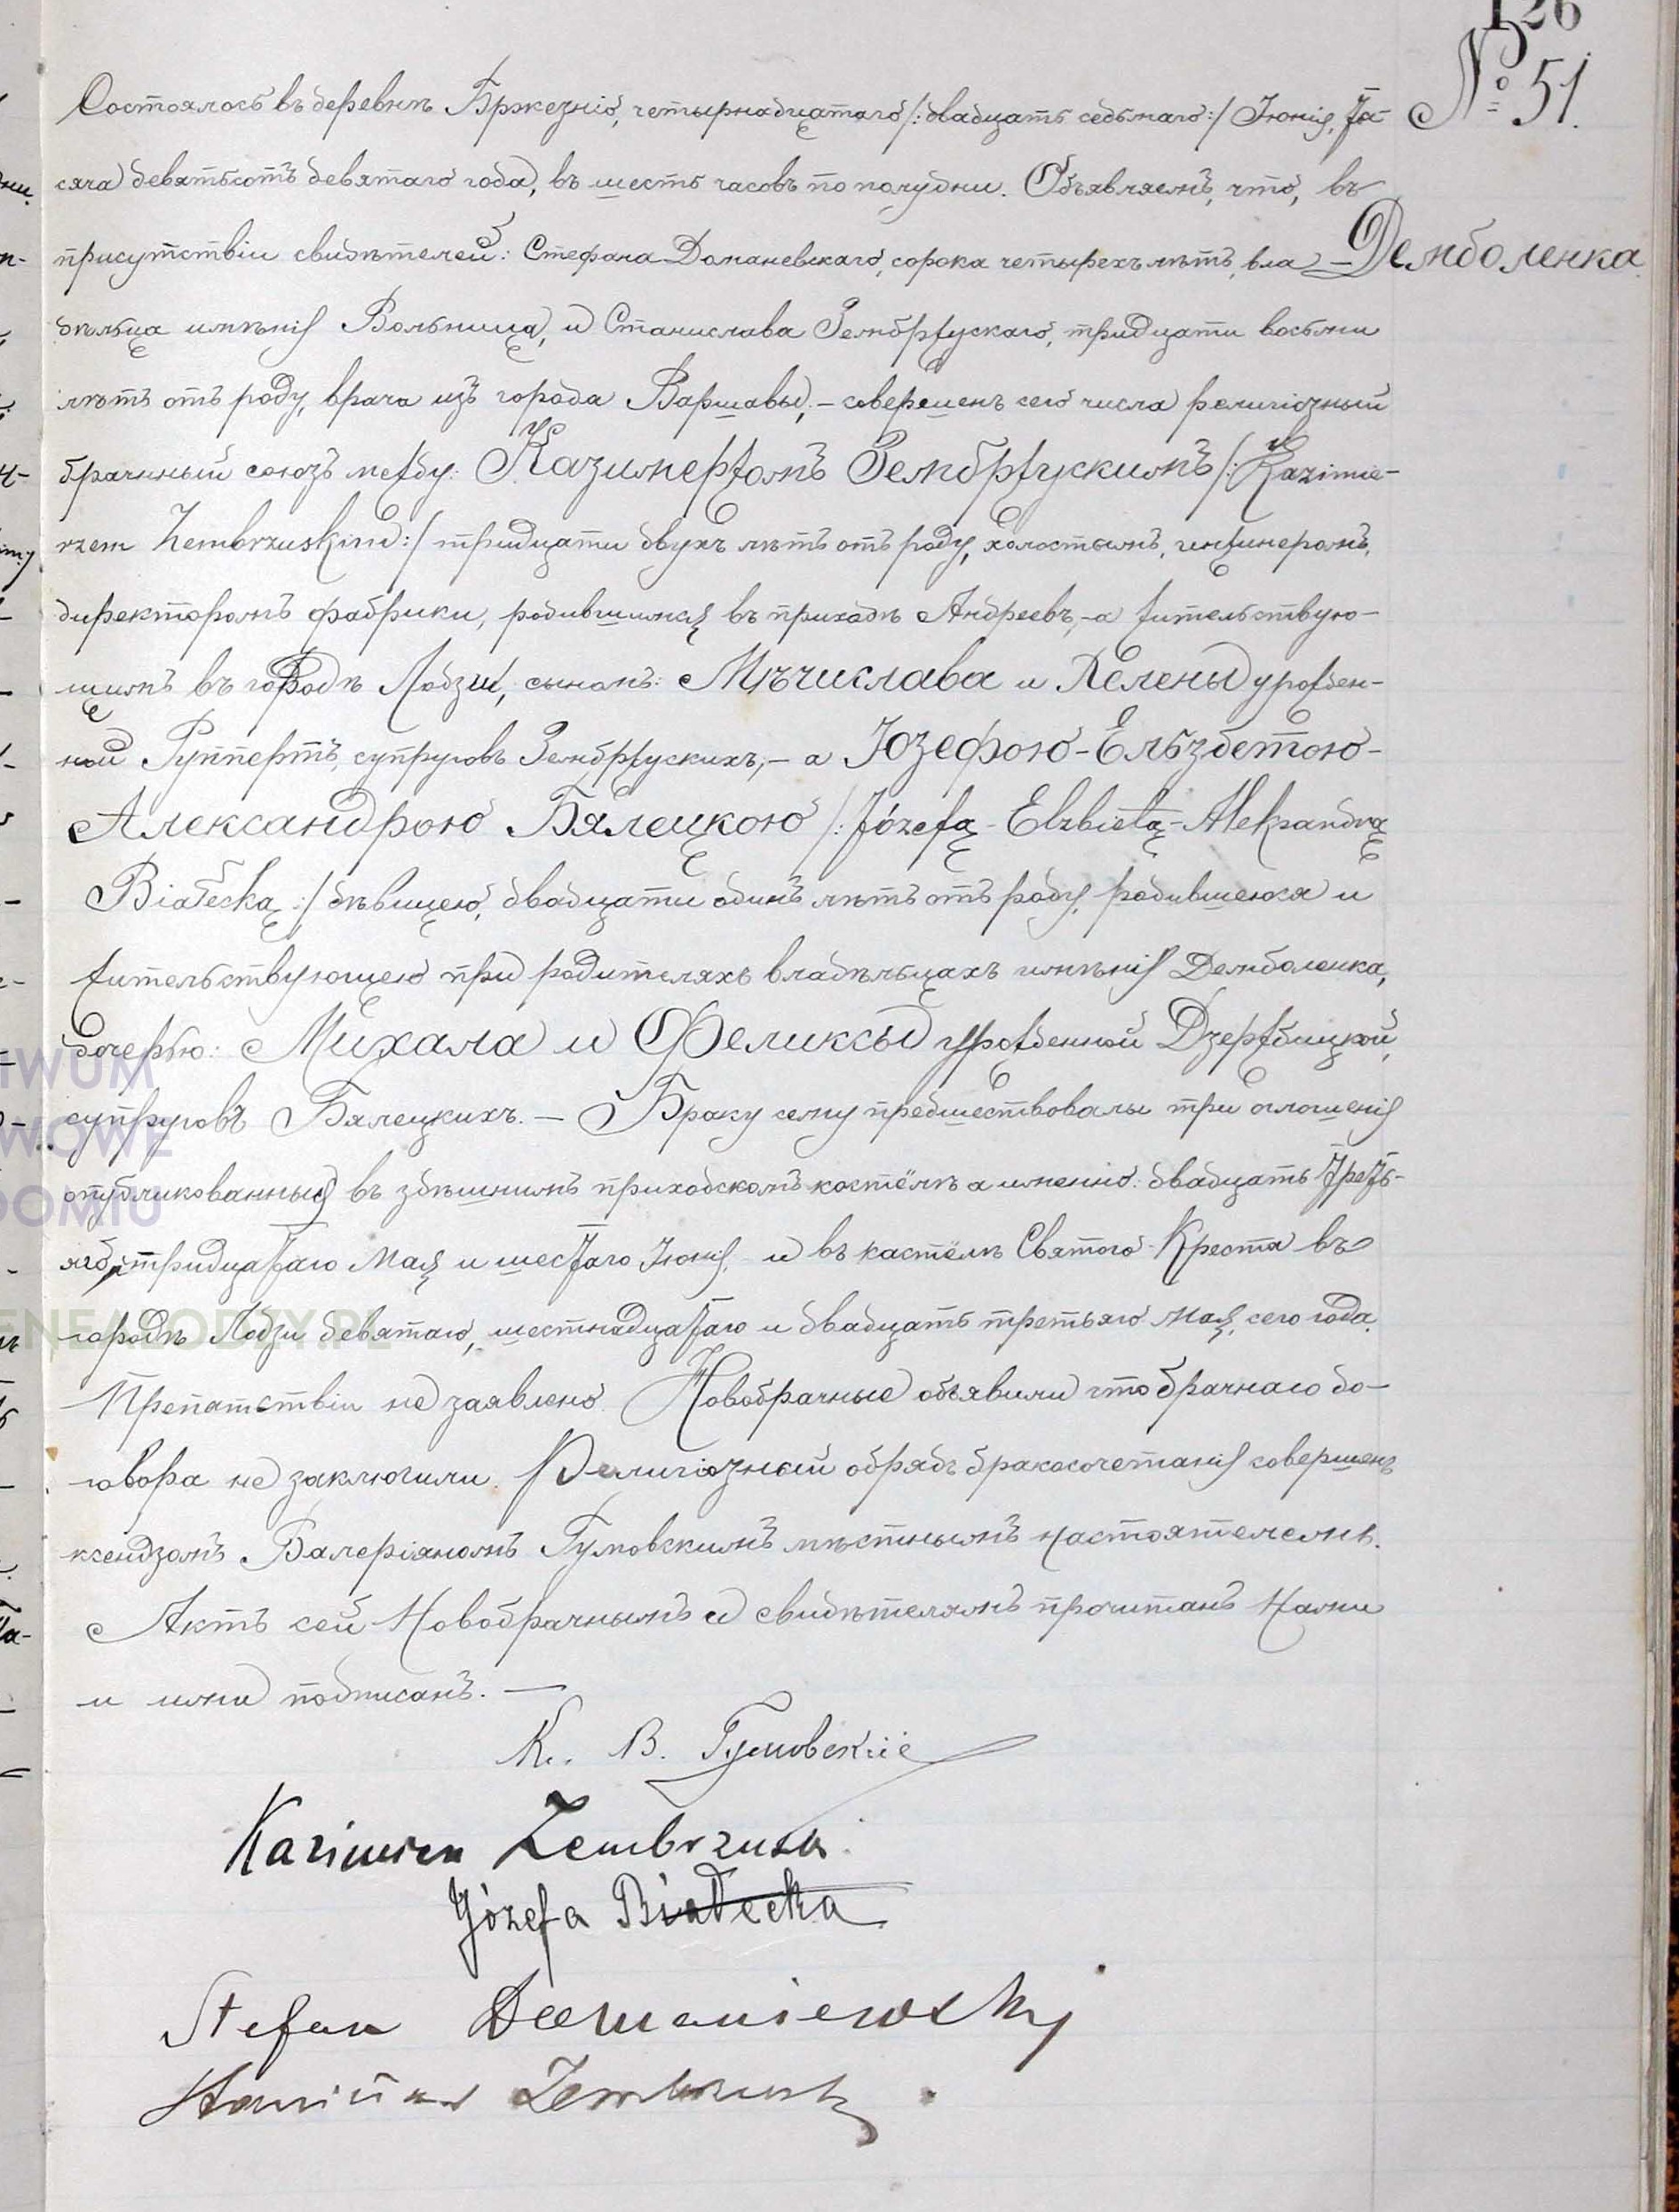 126
№ 51.
Состоялось въ деревнѣ Бржезніо, четырнадцатаго /:двадцать седьмаго:/ Іюнія, Ты-
сяча девятьсотъ девятаго года, въ шесть часовъ по полудни. Объявляемъ, что, въ
присутствіи свидѣтелей: Стефана Доманевскаго, сорока четырехъ лѣтъ, вла-
Демболенка
дѣльца имѣнія Вольница, и Станислава Зембржускаго, тридцати восьми
лѣтъ отъ роду, врача изъ города Варшавы, – совершенъ сего числа религіозный
брачнный союзъ между: Казимержомъ Зембржускимъ /:Kazimie-
rzem Zembrzuskim:/ тридцати двухъ лѣтъ отъ роду, холостымъ, инжинеромъ,
директоромъ фабрики, родившимся въ приходѣ Андреевъ, – а жительствую-
щимъ въ городѣ Лодзи, сыномъ: Мѣчислава и Хелены урожден-
ной Руппертъ, супруговъ Зембржускихъ, – а Юзефою-Ельзбетою-
Александрою Бялецкою /:Józefą-Elzbietą-Aleksandrą
Białecką:/ дѣвицею, двадцати одинъ лѣтъ отъ роду, родившеюся и
жительствующею при родителяхъ владѣльцахъ имѣнія Демболенка,
дочерью: Михала и Феликсы урожденной Дзержбицкой,
супруговъ Бялецкихъ. – Браку сему предшествовалы три оглошенія
опубликованныя въ здѣшнимъ приходскомъ костёлѣ а именно: двадцать треть-
яго, тридцатаго Мая и шестаго Іюнія, и въ костёлѣ Святого Креста въ
городѣ Лодзи девятаго, шестнадцатаго и двадцать третьяго Мая, сего года.
Препатствіи не заявлено. Новобрачные объявили что брачнаго до-
говора не заключили. Религіозный обрядъ бракосочетанія совершенъ
ксендзомъ Валеріяномъ Гумовскимъ мѣстнымъ настоятелемъ.
Актъ сей Новобрачнымъ и свидѣтелямъ прочитанъ Нами
и ими подписанъ. —
К. В. Гумовскіе
Kazimierz Zembrzuski
Józefa Białecka
Stefan Domaniewski
Stanisław Zembrzuski